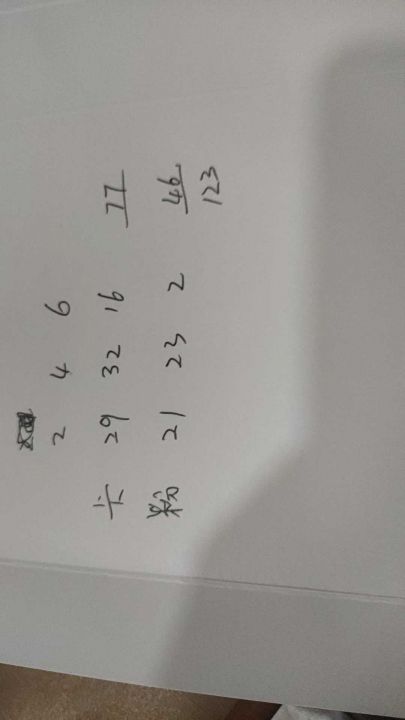 2 4 6
卡 29 32 16 77
粉 21 23 2 46
123